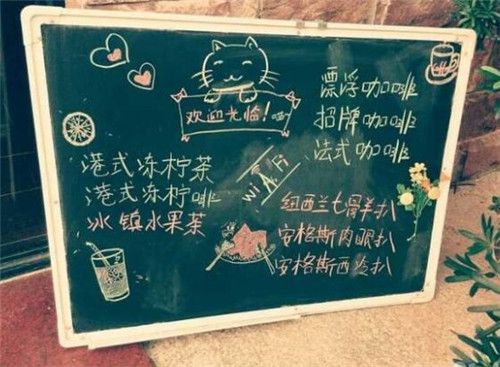 欢迎光临!
漂浮咖啡
招牌咖啡
法式咖啡
港式冻柠茶
港式冻柠啡
冰镇水果茶
WiFi
纽西兰七骨羊扒
安格斯肉眼扒
安格斯西冷扒